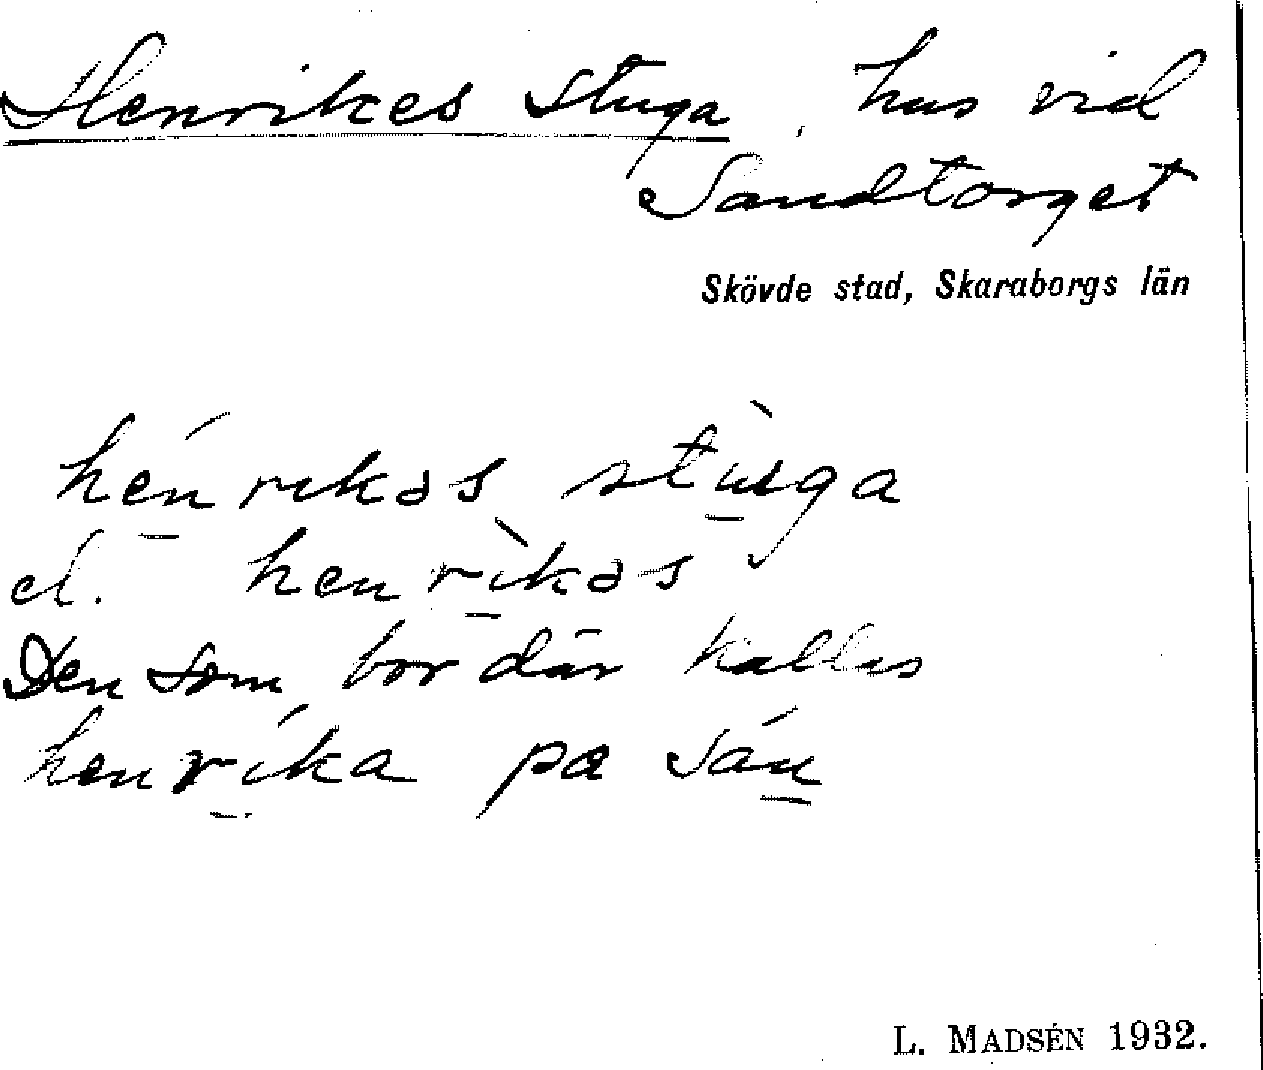 Henrikes stuga, hus vid
Sandtorget
Skövde stad, Skaraborgs län
hénrikəs stùga
el. henrìkəs
Den som bor där kallas
henríka pa sán
L. MADSÉN 1932.